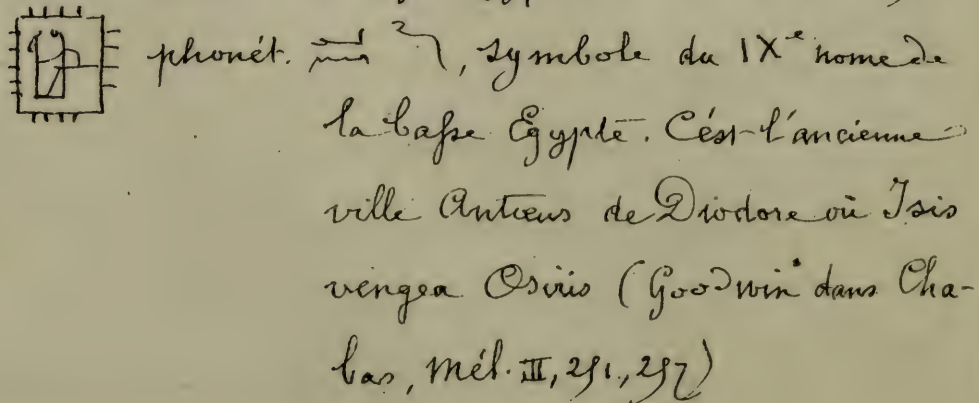 phonét. , symbole du IXe nome de
la basse Égypte. C'ést l'ancienne
ville Antæus de Diodore où Isis
vengea Osiris (Goodwin dans Cha-
bas, Mél. III, 251, 257)